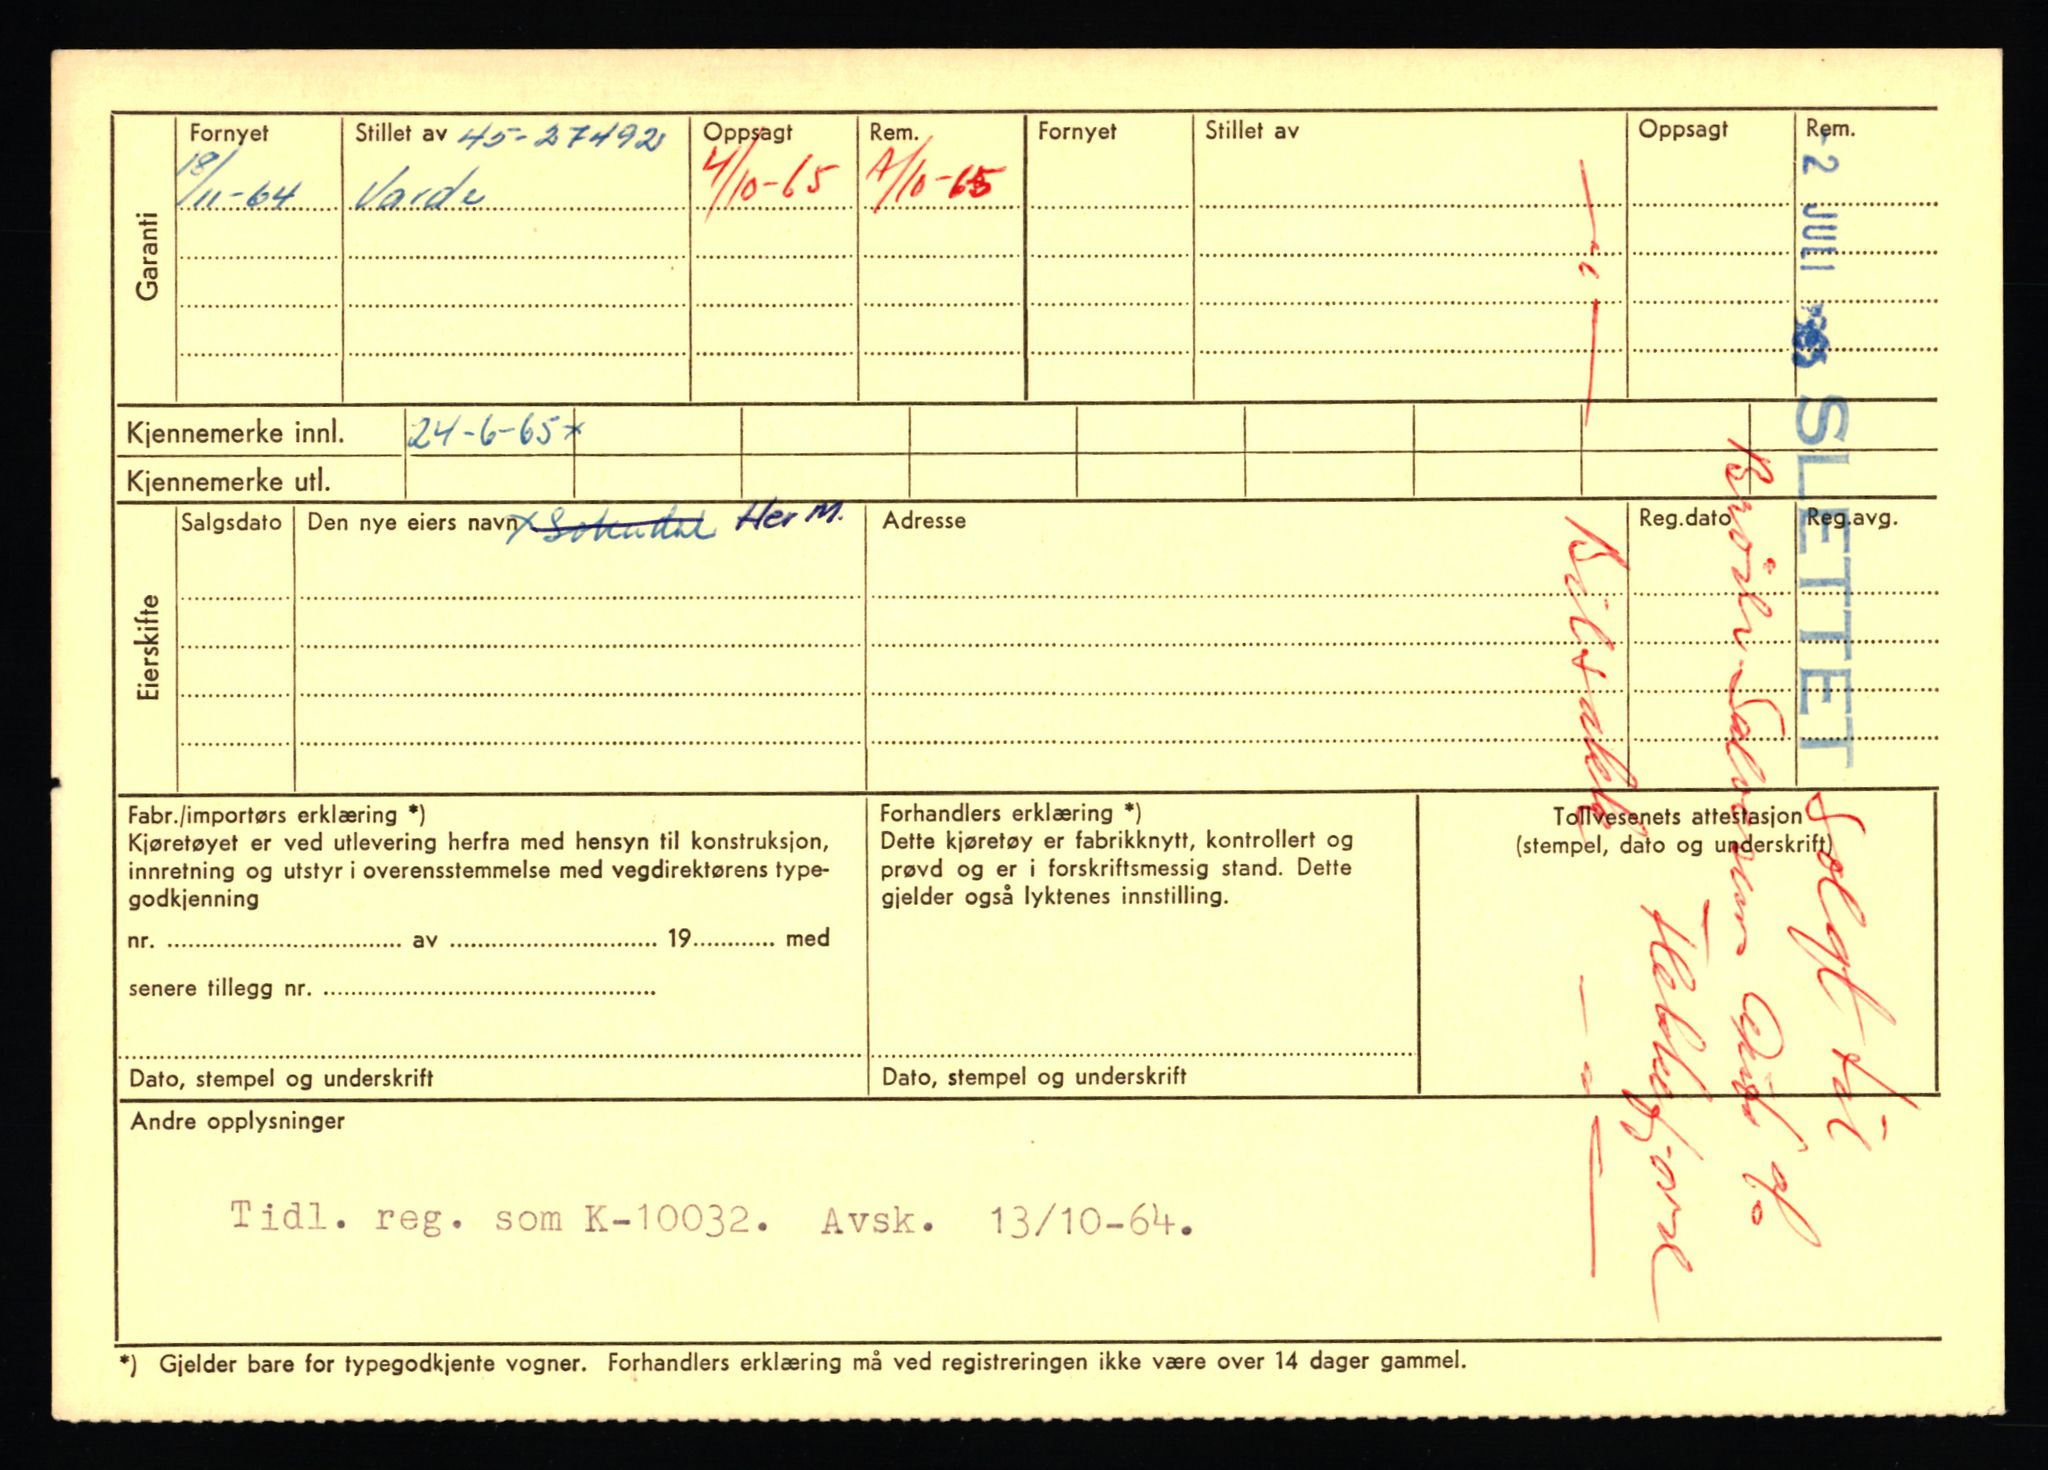 Garanti
Fornyet Stillet av 45-27492 Oppsagt Rem. Fornyet Stillet av Oppsagt Rem.
18/11-64 Varde 4/10-65 4/10-65
Kjennemerke innl. 24-6-65x
Kjennemerke utl.
Eierskifte
Salgsdato Den nye eiers navn x Her M. Adresse Reg.dato Reg.avg.
Fabr./importørs erklæring *)
Kjøretøyet er ved utlevering herfra med hensyn til konstruksjon,
innretning og utstyr i overensstemmelse med vegdirektørens type-
godkjenning
nr. .................... av .................... 19............ med
senere tillegg nr. ....................
Dato, stempel og underskrift
Forhandlers erklæring *)
Dette kjøretøy er fabrikknytt, kontrollert og
prøvd og er i forskriftsmessig stand. Dette
gjelder også lyktenes innstilling.
Dato, stempel og underskrift
Tollvesenets attestasjon
(stempel, dato og underskrift)
Andre opplysninger
Tidl. reg. som K-10032. Avsk. 13/10-64.
*) Gjelder bare for typegodkjente vogner. Forhandlers erklæring må ved registreringen ikke være over 14 dager gammel.
-2 JULI 1965 SLETTET
Solgt til
Brødr. Salvesen